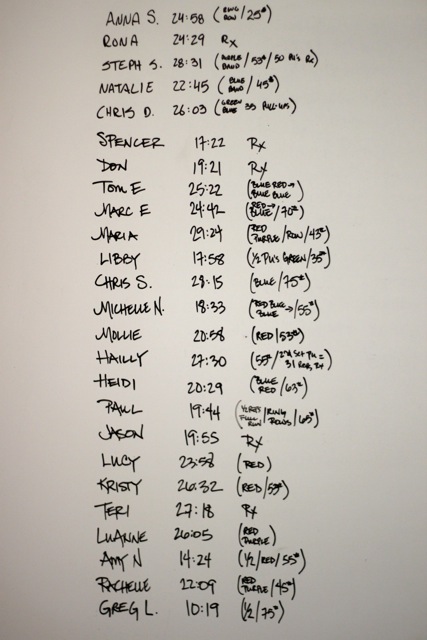 ANNA S. 24:58 (RING ROW/25#)
RONA 24:29 Rx
STEPH S. 28:31 (PURPLE BAND/53#/50 PU'S Rx)
NATALIE 22:45 (BLUE BAND/45#)
CHRIS D. 26:03 (GREEN BLUE 35 PULL-UPS)
SPENCER 17:22 Rx
DON 19:21 Rx
TOM E 25:22 (BLUE RED→ BLUE BLUE)
MARC E 24:42 (RED→ BLUE/70#)
MARIA 29:24 (RED PURPLE/ROW/43#)
LIBBY 17:58 (1/2 PU'S GREEN/35#)
CHRIS S. 28:15 (BLUE/75#)
MICHELLE N. 18:33 (RED BLUE→ BLUE/55#)
MOLLIE 20:58 (RED/53#)
HAILLY 27:30 (55#/2nd SET PU = 31 RED, Rx)
HEIDI 20:29 (BLUE RED/63#)
PAUL 19:44 (1/2 REPS FULL ROW/RING ROWS/65#)
JASON 19:55 Rx
LUCY 23:58 (RED)
KRISTY 26:32 (RED/53#)
TERI 27:18 Rx
LUANNE 26:05 (RED PURPLE)
AMY N 14:24 (1/2/RED/55#)
RACHELLE 22:09 (RED PURPLE/45#)
GREG L. 10:19 (1/2/75#)